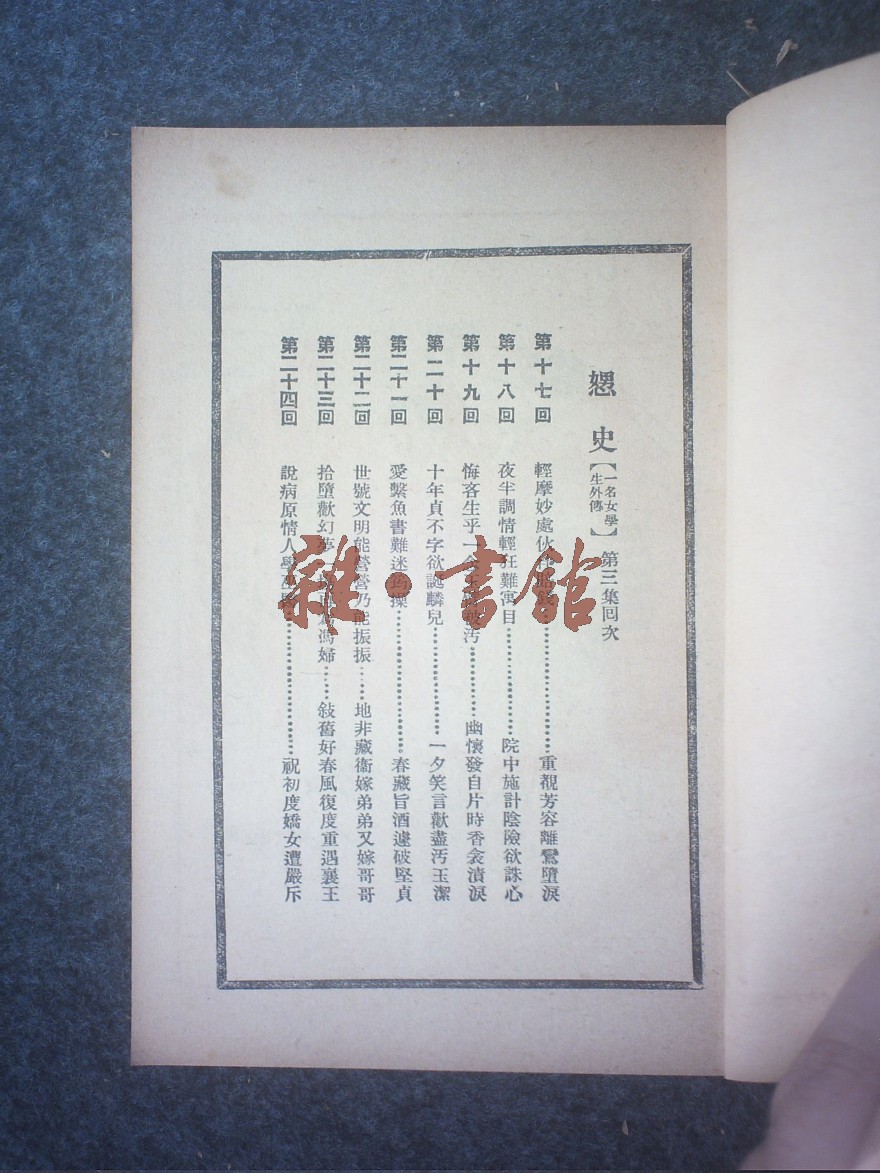 戀史【一名女學生外傳】第三集回次
第十七回 輕摩妙處伙 重覩芳容離鸞墮淚
第十八回 夜半調情輕狂難寓目 院中施計陰險欲誅心
第十九回 悔吝生乎一 汚 幽懷發自片時香衾漬淚
第二十回 十年貞不字欲誕麟兒 一夕笑言歡盡汚玉潔
第二十一回 愛繫魚書難迷 操 春藏旨酒遽破堅貞
第二十二回 世號文明能營營乃能振振 地非藏衞嫁弟弟又嫁哥哥
第二十三回 拾墮歡幻夢 馮婦 敍舊好春風復度重遇襄王
第二十四回 說病原情人學 祝初度嬌女遭嚴斥
雜·書館